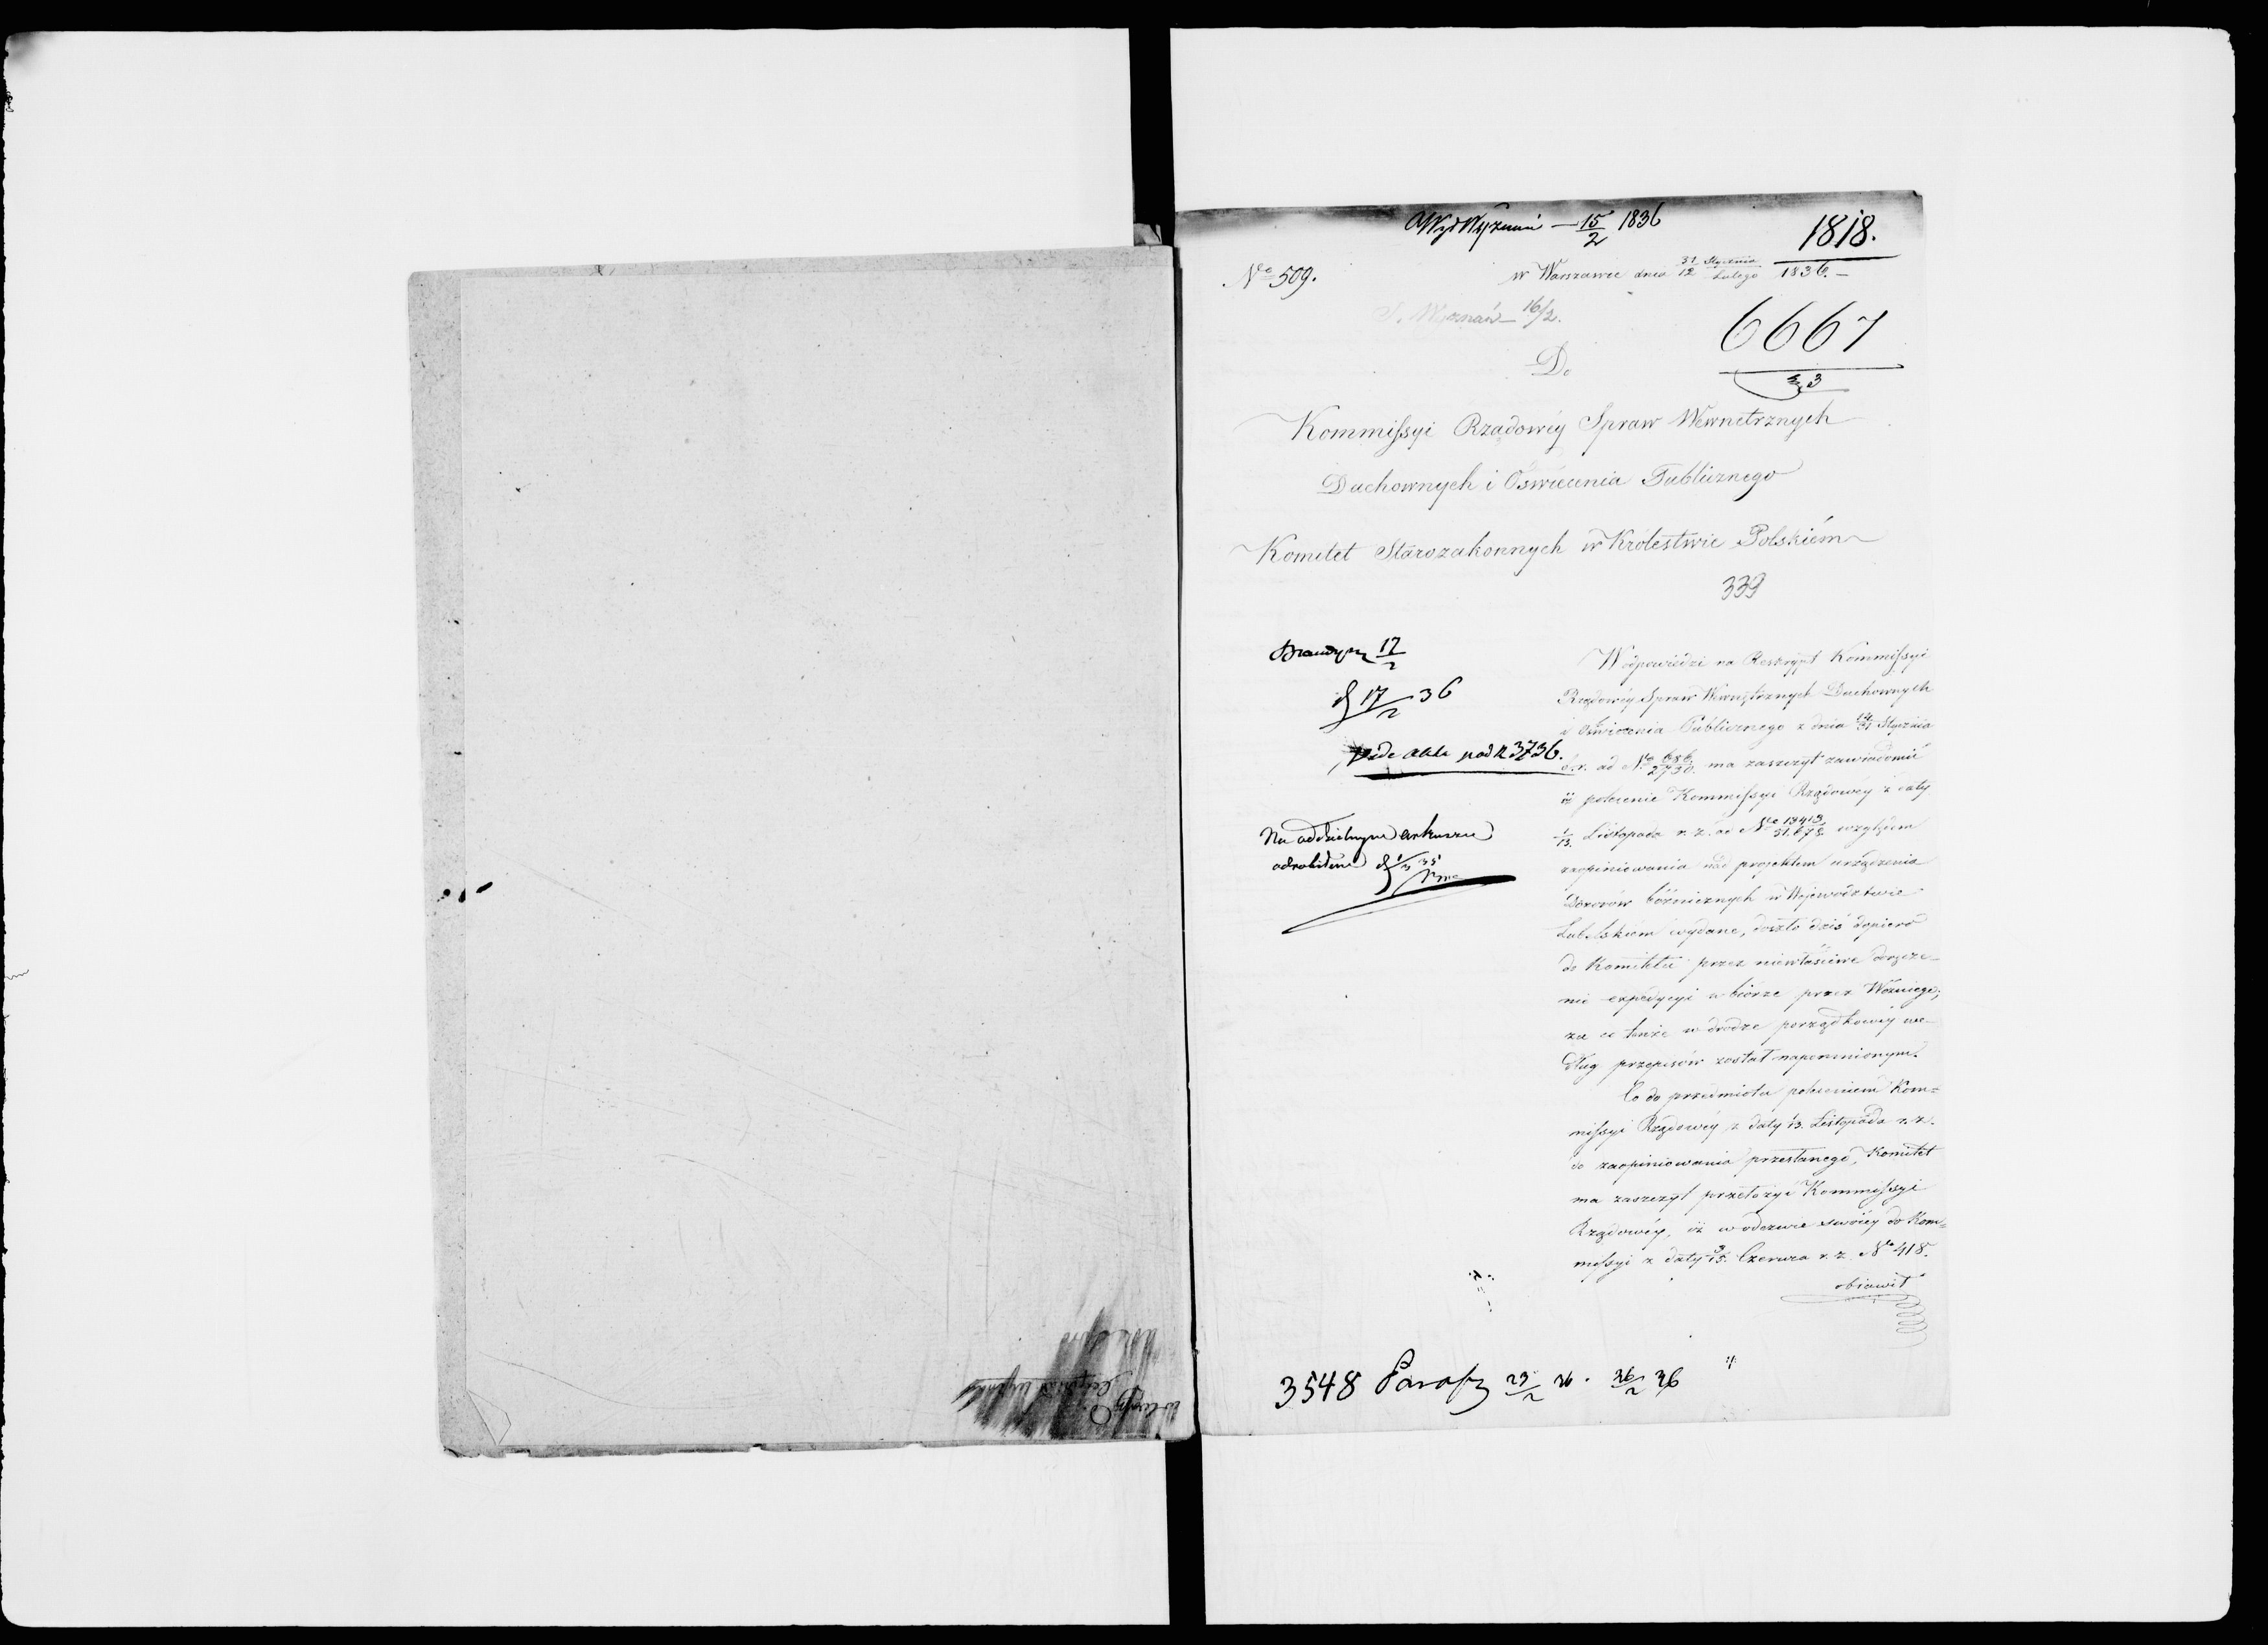 Wyd Wyznań 15/2 1836
1818.
No 509.
w Warszawie dnia 31/12 Stycznia/Lutego 1836.
S. Wyznań 16/2.
6667
3
Do
Kommissyi Rządowéy Spraw Wewnetrznych
Duchownych i Oswiecenia Publicznego
Komitet Starozakonnych w Królestwie Polskiém
339
17/2
17/2 36
Vide akta pod N 3736.
Na oddzielnym arkuszu
odrobiłem
W odpowiedzi na Reskrypt Kommissyi
Rządowéy Spraw Wewnętrznych Duchownych
i Oświecenia Publicznego z dnia Stycznia
b.r. ad No 686/2730. ma zaszczyt zawiadomić
iż polecenie Kommissyi Rządowéy z daty
1/13. Listopada r. z. ad No 13413/51.678. względem
zaopiniowania nad projektem urządzenia
Dozorów bóżnicznych w Województwie
Lubelskiem wydane, doszło dziś dopiero
do Komitetu przez niewłaściwe doręcze-
nie expedycyi w biórze przez Woźniego;
za co tenże w drodze porządkowéy we-
dług przepisów został napomnionym.
Co do przedmiotu poleceniem Kom=
missyi Rządowéy z daty 13. Listopada r. z.
do zaopiniowania przesłanego, Komitet
ma zaszczyt przełożyć Kommissyi
Rządowéy, iż w odezwie swoiéy do Kom=
missyi z daty 3/15. Czerwca r. z. No 418.
obiawił
3548 23/2 36 . 26/2 36